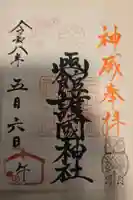 神威奉拝
函館護國神社
令和八年五月六日
午